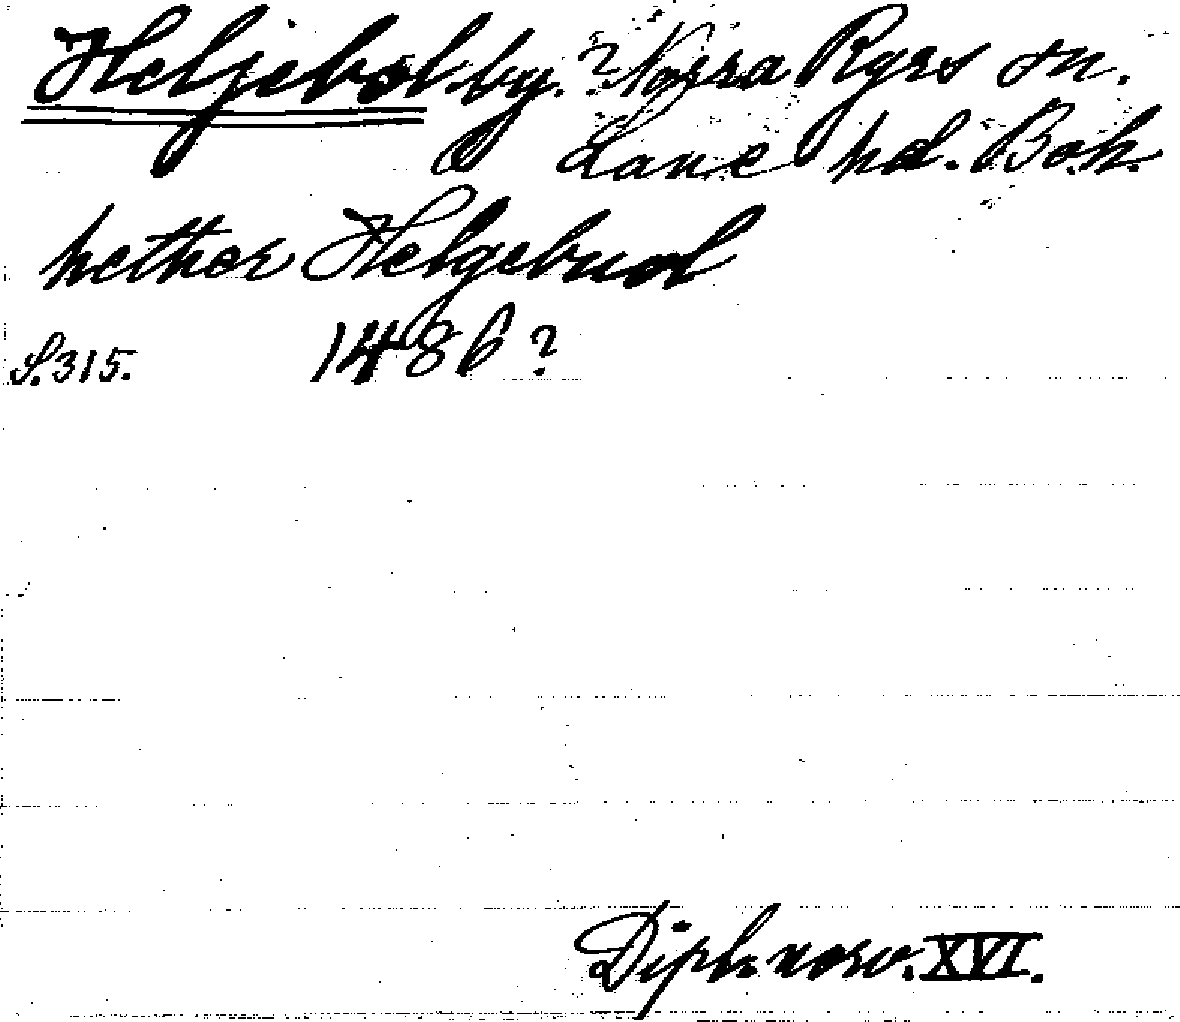 Heljebol by. ? Norra Ryrs sn.
Lane hd. Boh.
nether Helgebud
S. 315. 1486 ?
Dipl. norv. XVI.